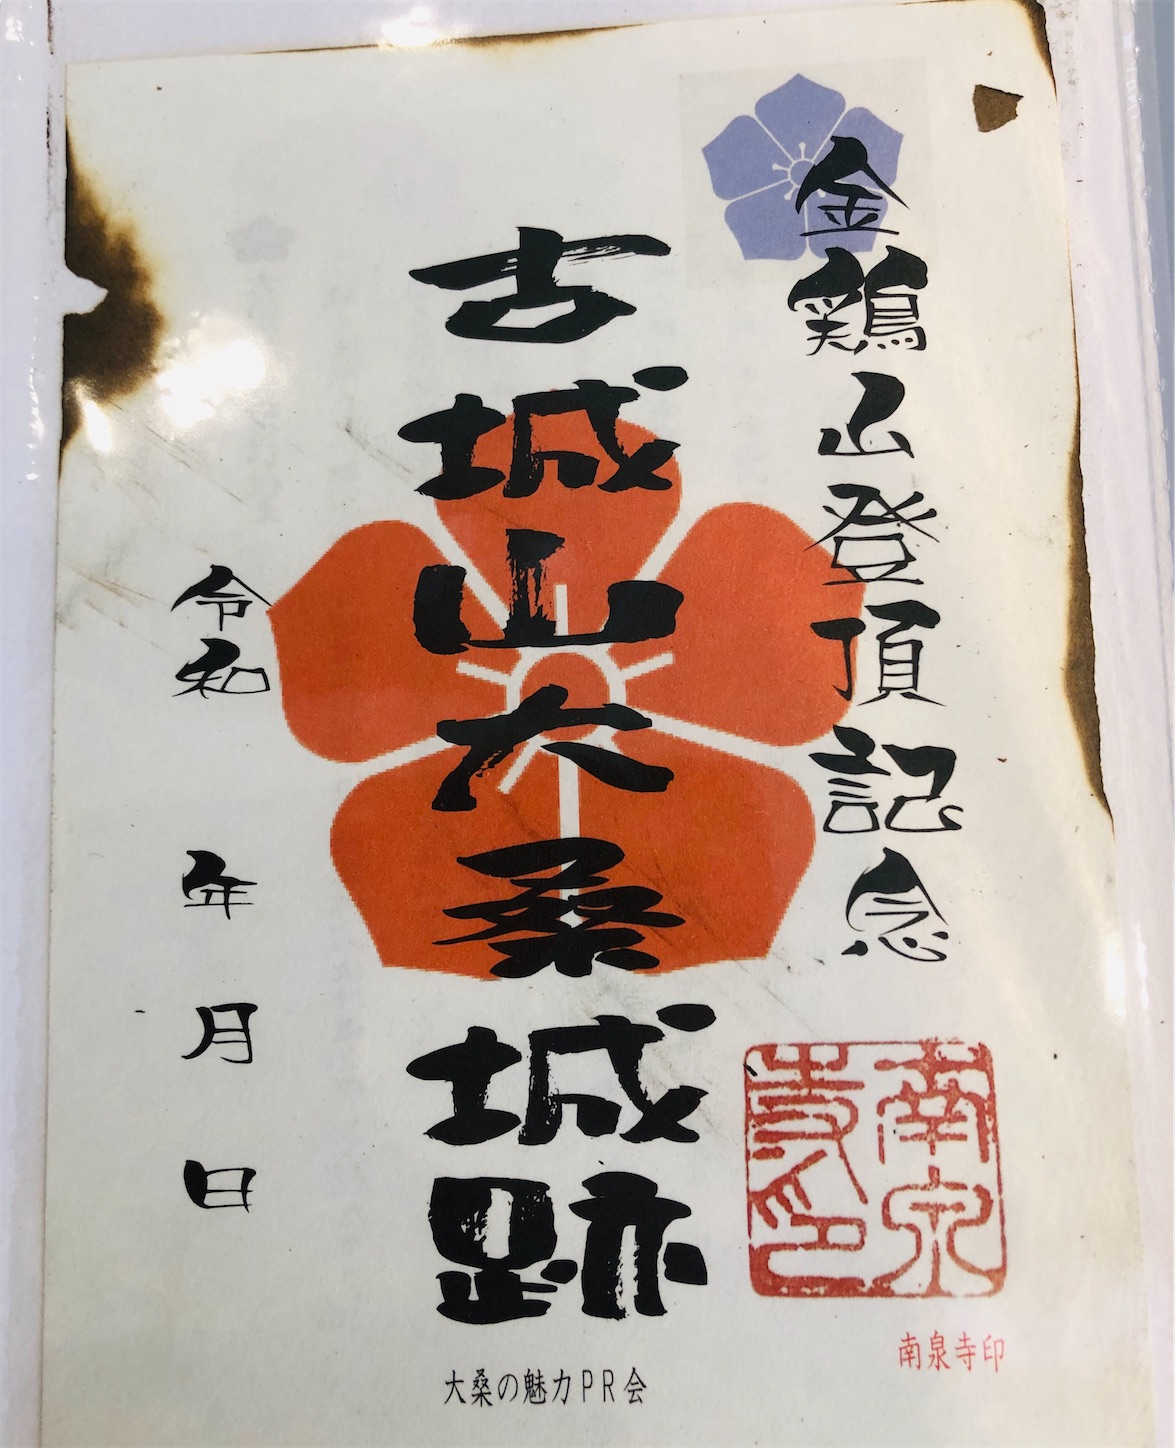 金鶏山登頂記念
古城山大桑城跡
令和 年 月 日
南泉寺印
南泉寺印
大桑の魅力PR会